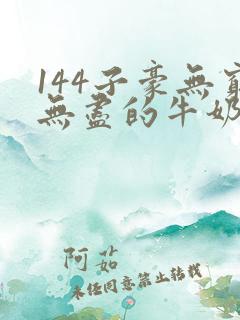 144子豪無窮
無盡的牛奶
阿茹
未經同意禁止轉載